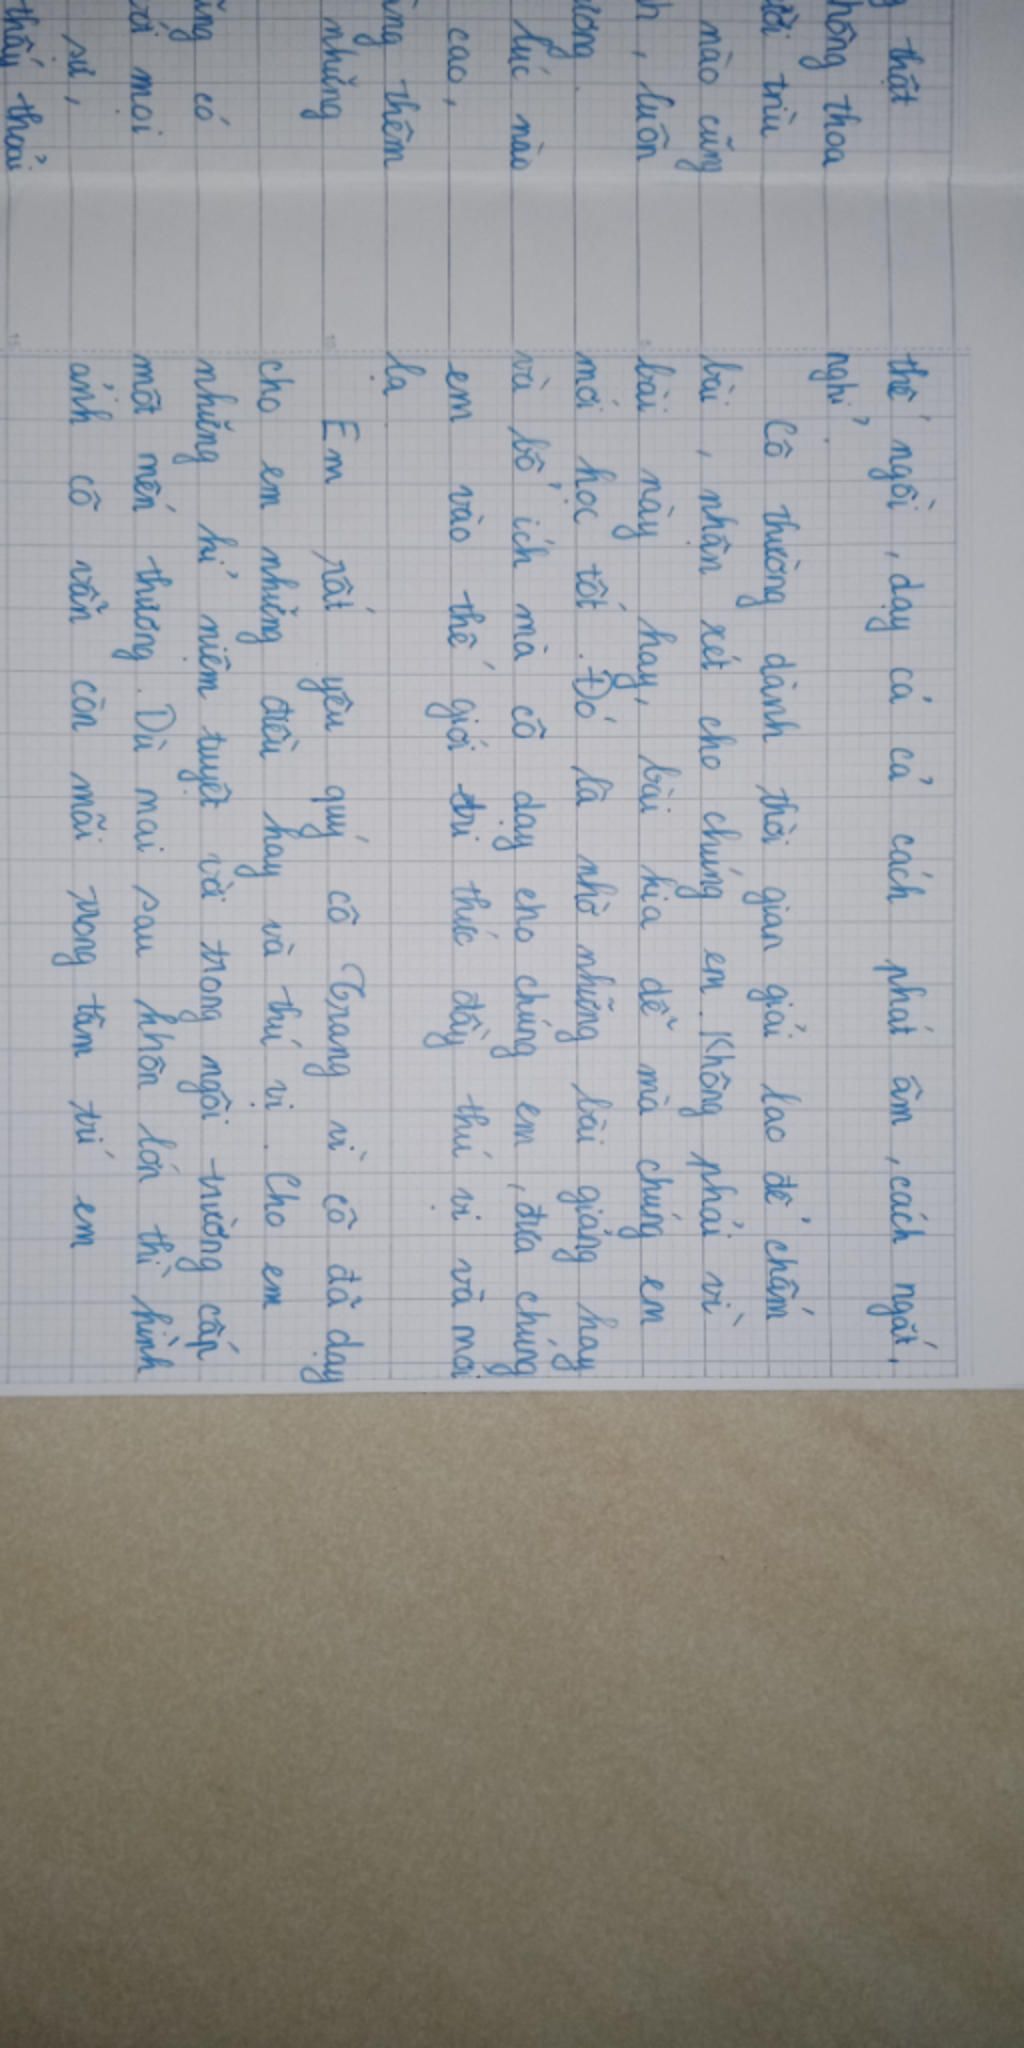 thật
thoa
trìu
nào cũng
luôn
lúc nào
cao,
thêm
những
có
mọi
sử,
thấy thoải
thế ngồi, dạy cả cả cách phát âm, cách ngắt,
nghỉ.
Cô thường dành thời gian giải lao để chấm
bài, nhận xét cho chúng em. Không phải vì
bài này hay, bài kia dễ mà chúng em
mới học tốt. Đó là nhờ những bài giảng hay
và bổ ích mà cô dạy cho chúng em, đưa chúng
em vào thế giới tri thức đầy thú vị và mới
lạ.
Em rất yêu quý cô Trang vì cô đã dạy
cho em những điều hay và thú vị. Cho em
những kỉ niệm tuyệt vời trong ngôi trường cấp
một mến thương. Dù mai sau khôn lớn thì hình
ảnh cô vẫn còn mãi trong tâm trí em